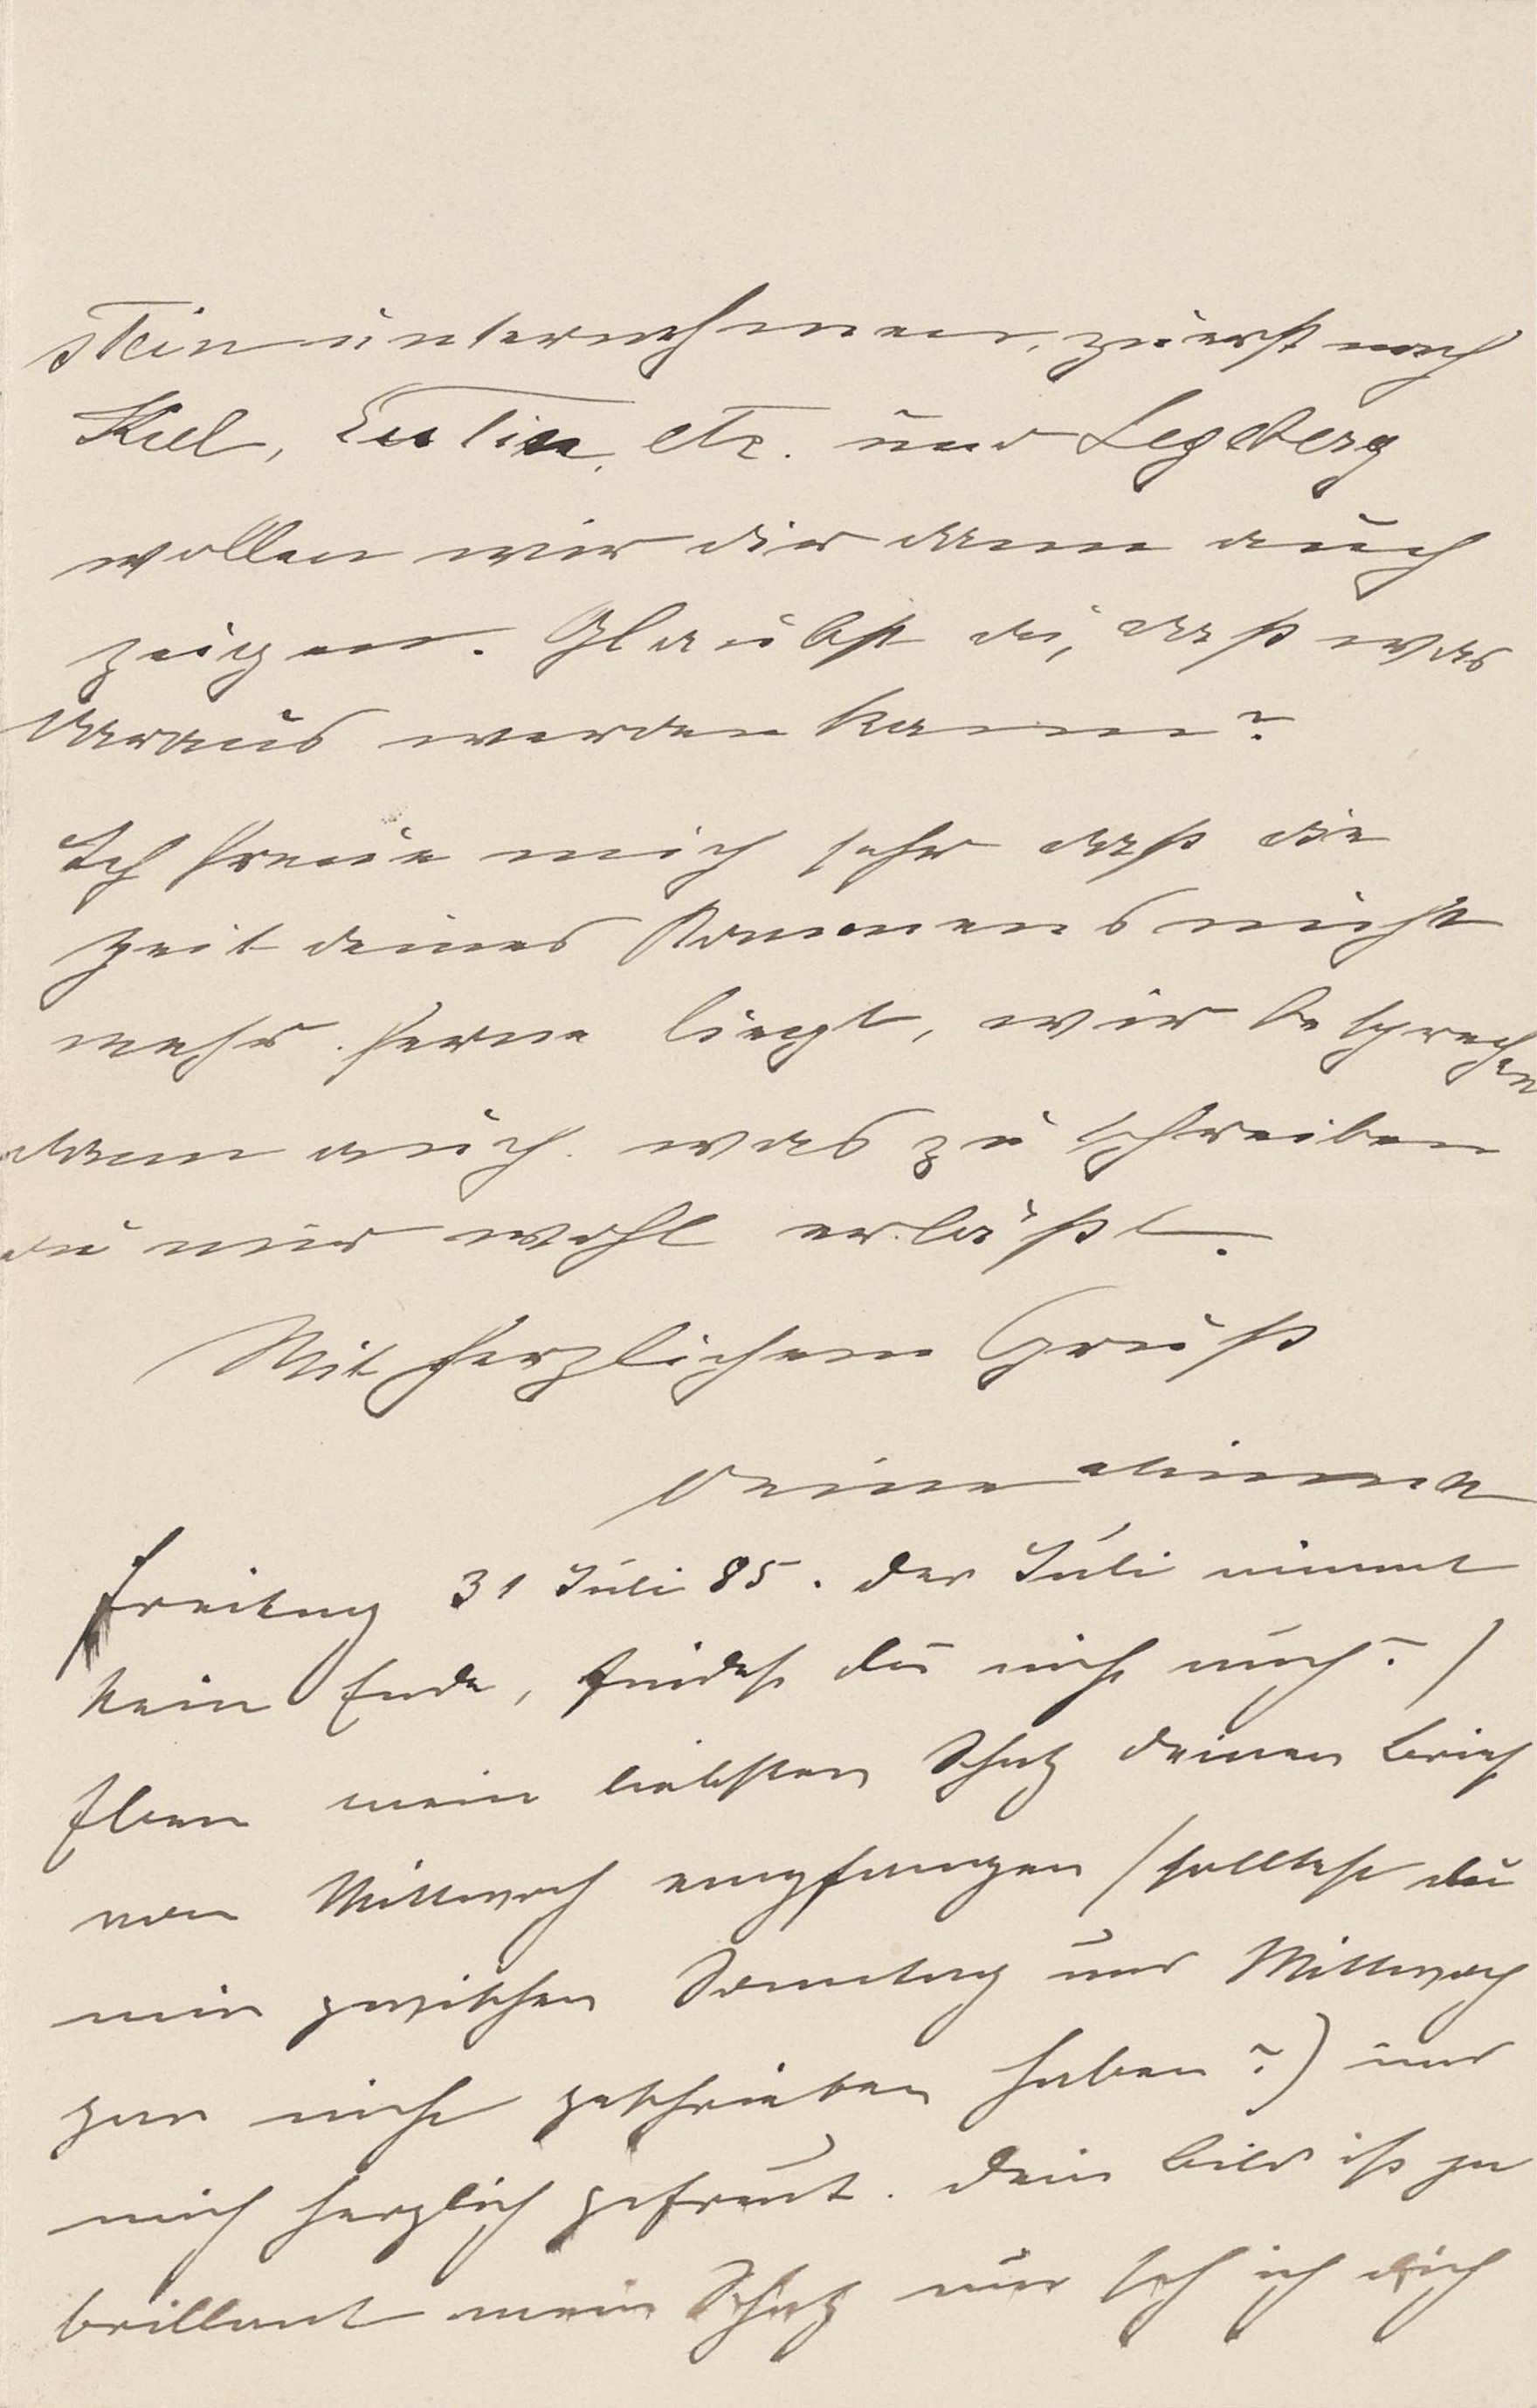 stein unternehmen, zuerst nach
Kiel, Eutin, etc. und Segeberg
wollen wir dir dann auch
zeigen. Glaubst du, daß was
daraus werden kann?
Ich freue mich sehr daß die
Zeit deines Kommens nicht
mehr ferne liegt, wir besprechen
dann auch was zu schreiben
du mir wohl erläßt.
Mit herzlichem Gruß
Deine Minna
Freitag 31 Juli 85. Der Juli nimmt
kein Ende, findest du nicht auch?/
Eben mein liebster Schatz deinen Brief
von Mittwoch empfangen (solltest du
mir zwischen Sonntag und Mittwoch
gar nicht geschrieben haben?) und
mich herzlich gefreut. Dein Bild ist ja
brillant mein Schatz nur seh ich dich